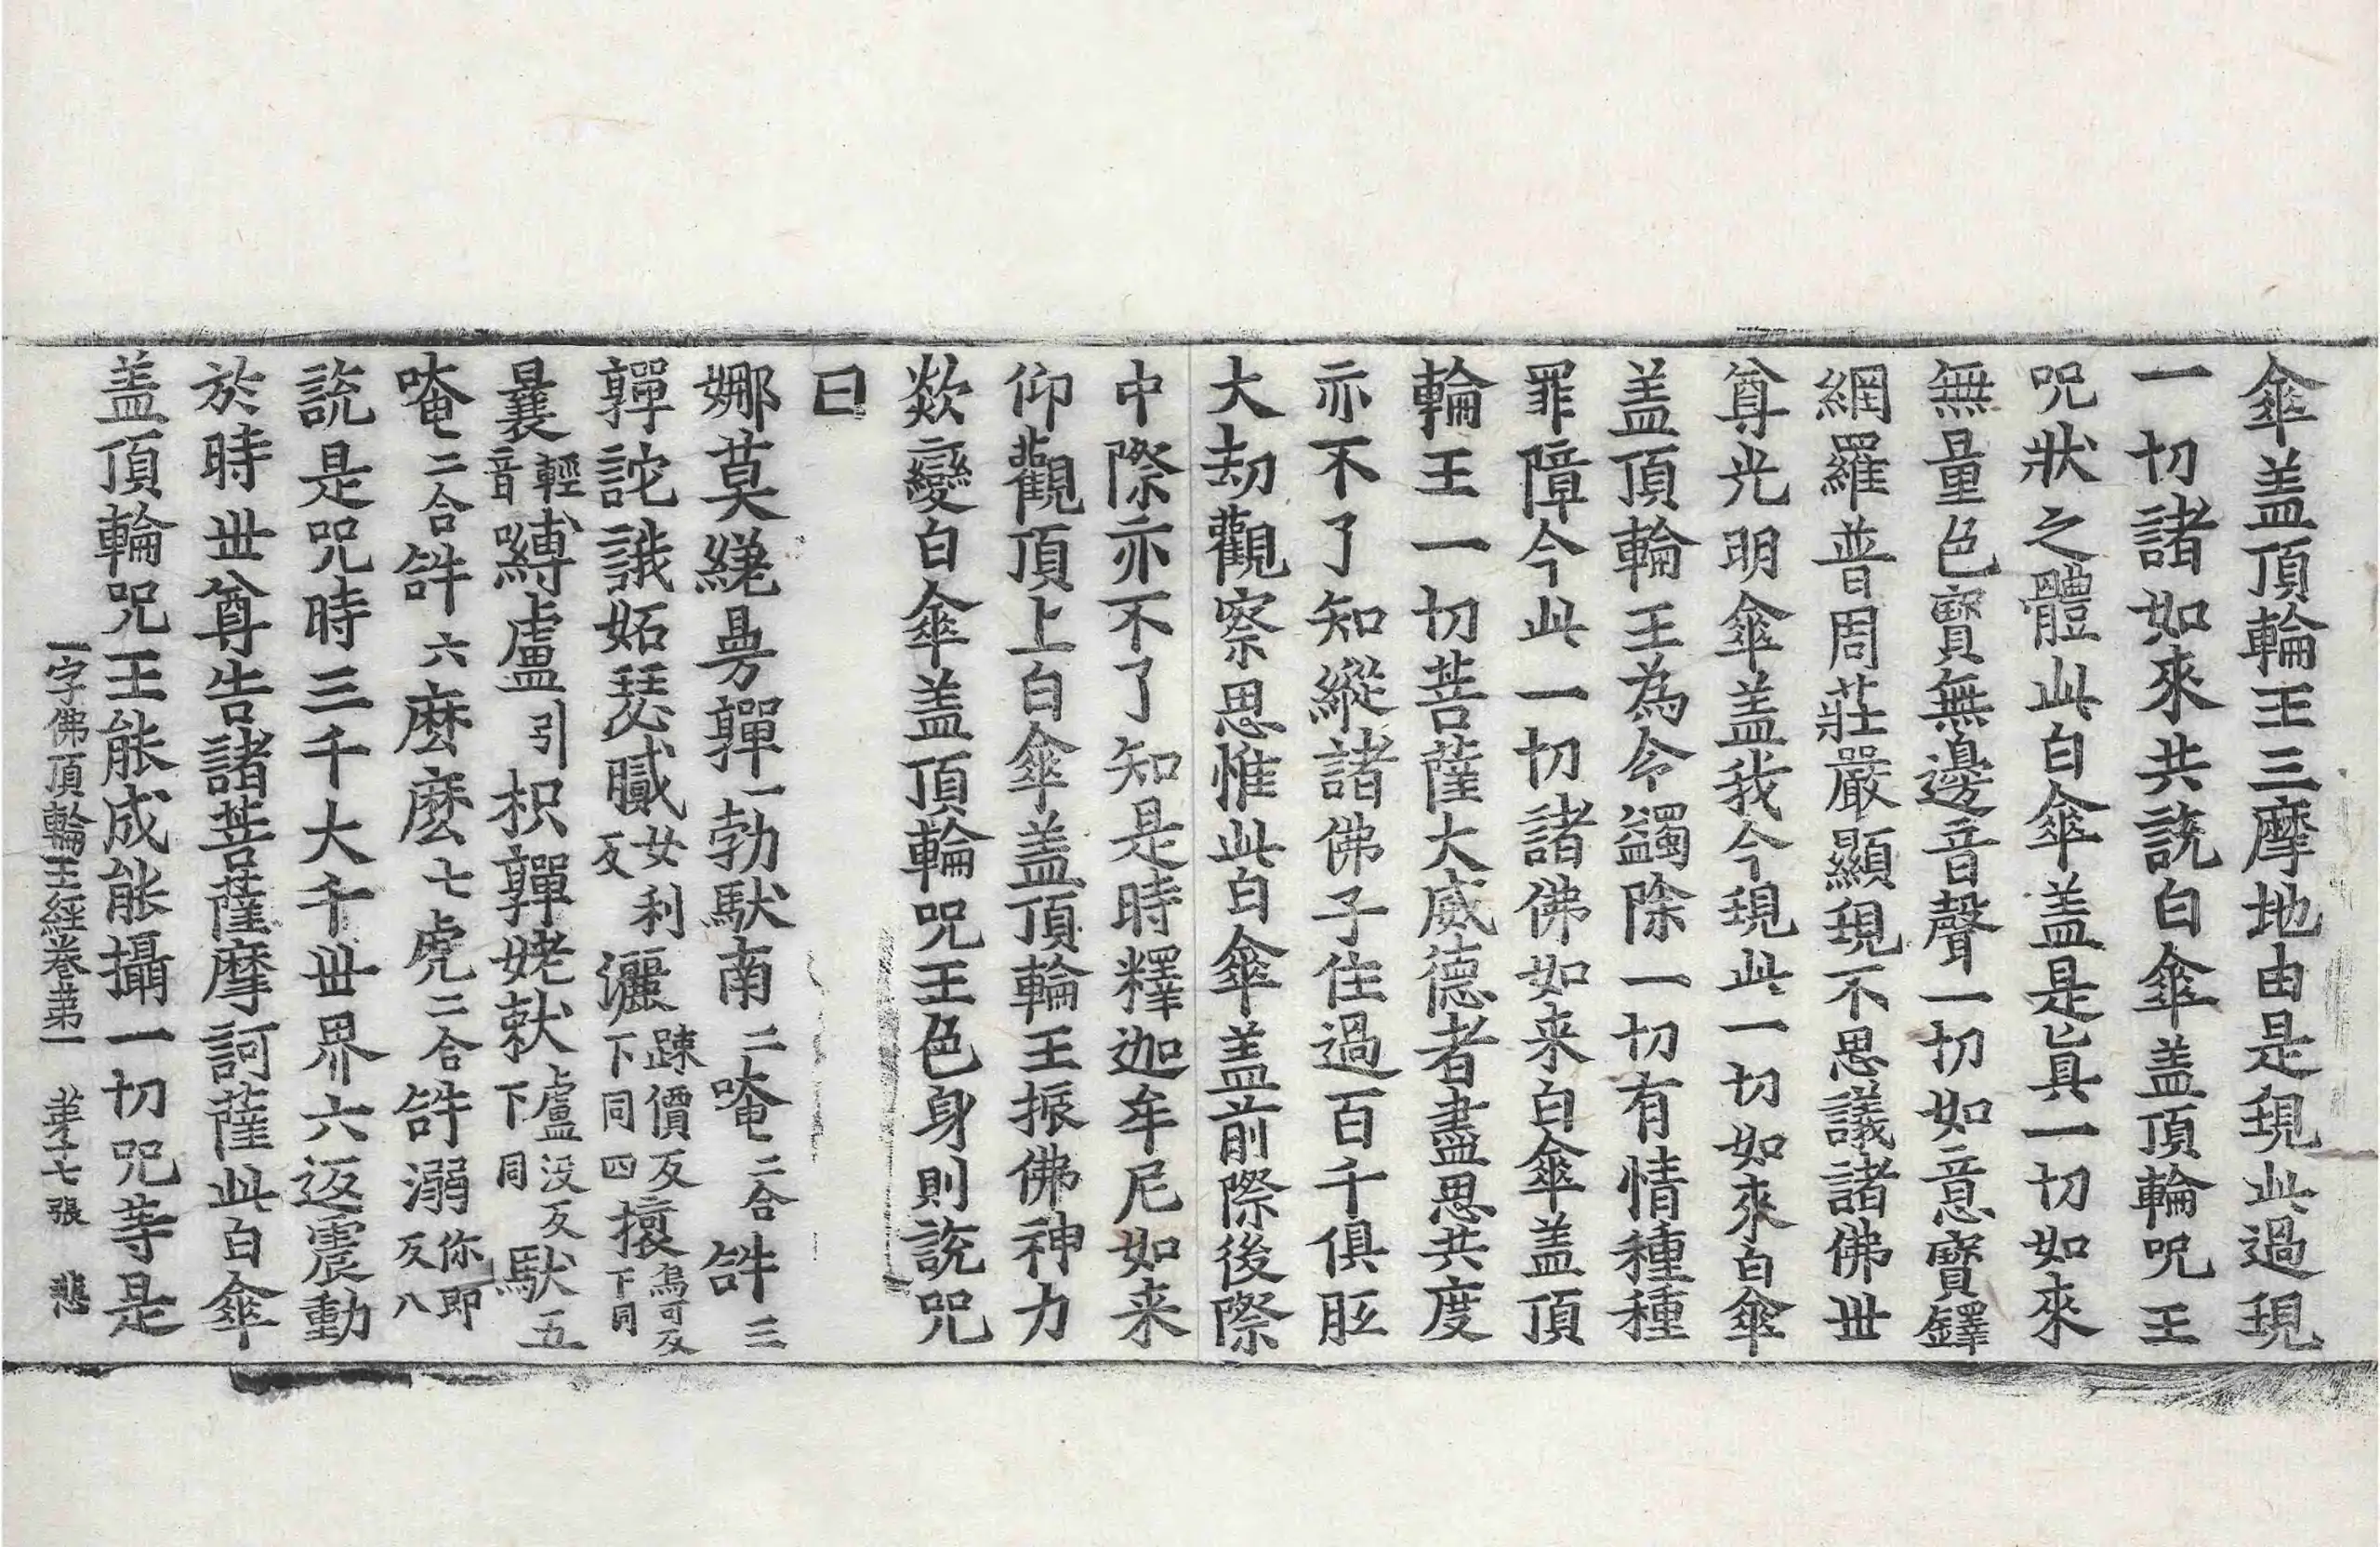 傘盖頂輪王三摩地由是現此過現
一切諸如來共說白傘盖頂輪呪王
呪狀之體此白傘盖是眞一切如來
無量色寶無邊音聲一切如意寶鐸
網羅普周莊嚴顯現不思議諸佛世
尊光明傘盖我今現此一切如來白傘
盖頂輪王為令蠲除一切有情種種
罪障今此一切諸佛如来白傘盖頂
輪王一切菩薩大威德者盡思共度
亦不了知縱諸佛子住過百千俱胝
大劫觀察思惟此白傘盖前際後際
中際亦不了知是時釋迦牟尼如来
仰觀頂上白傘盖頂輪王振佛神力
欻變白傘盖頂輪呪王色身則說呪
曰
娜莫繞曼嚲一勃馱南二唵二合𤙖三
嚲詑誐妬瑟膩女利反灑疎價反下同四擐烏可反下同
曩輕音嚩盧引枳嚲姥欶盧没反下同馱五
唵二合𤙖六麽麽七虎二合𤙖溺你即反八
說是呪時三千大千世界六返震動
於時世尊告諸菩薩摩訶薩此白傘
盖頂輪呪王能成能攝一切呪等是
一字佛頂輪王經卷第一　第十七張　悲